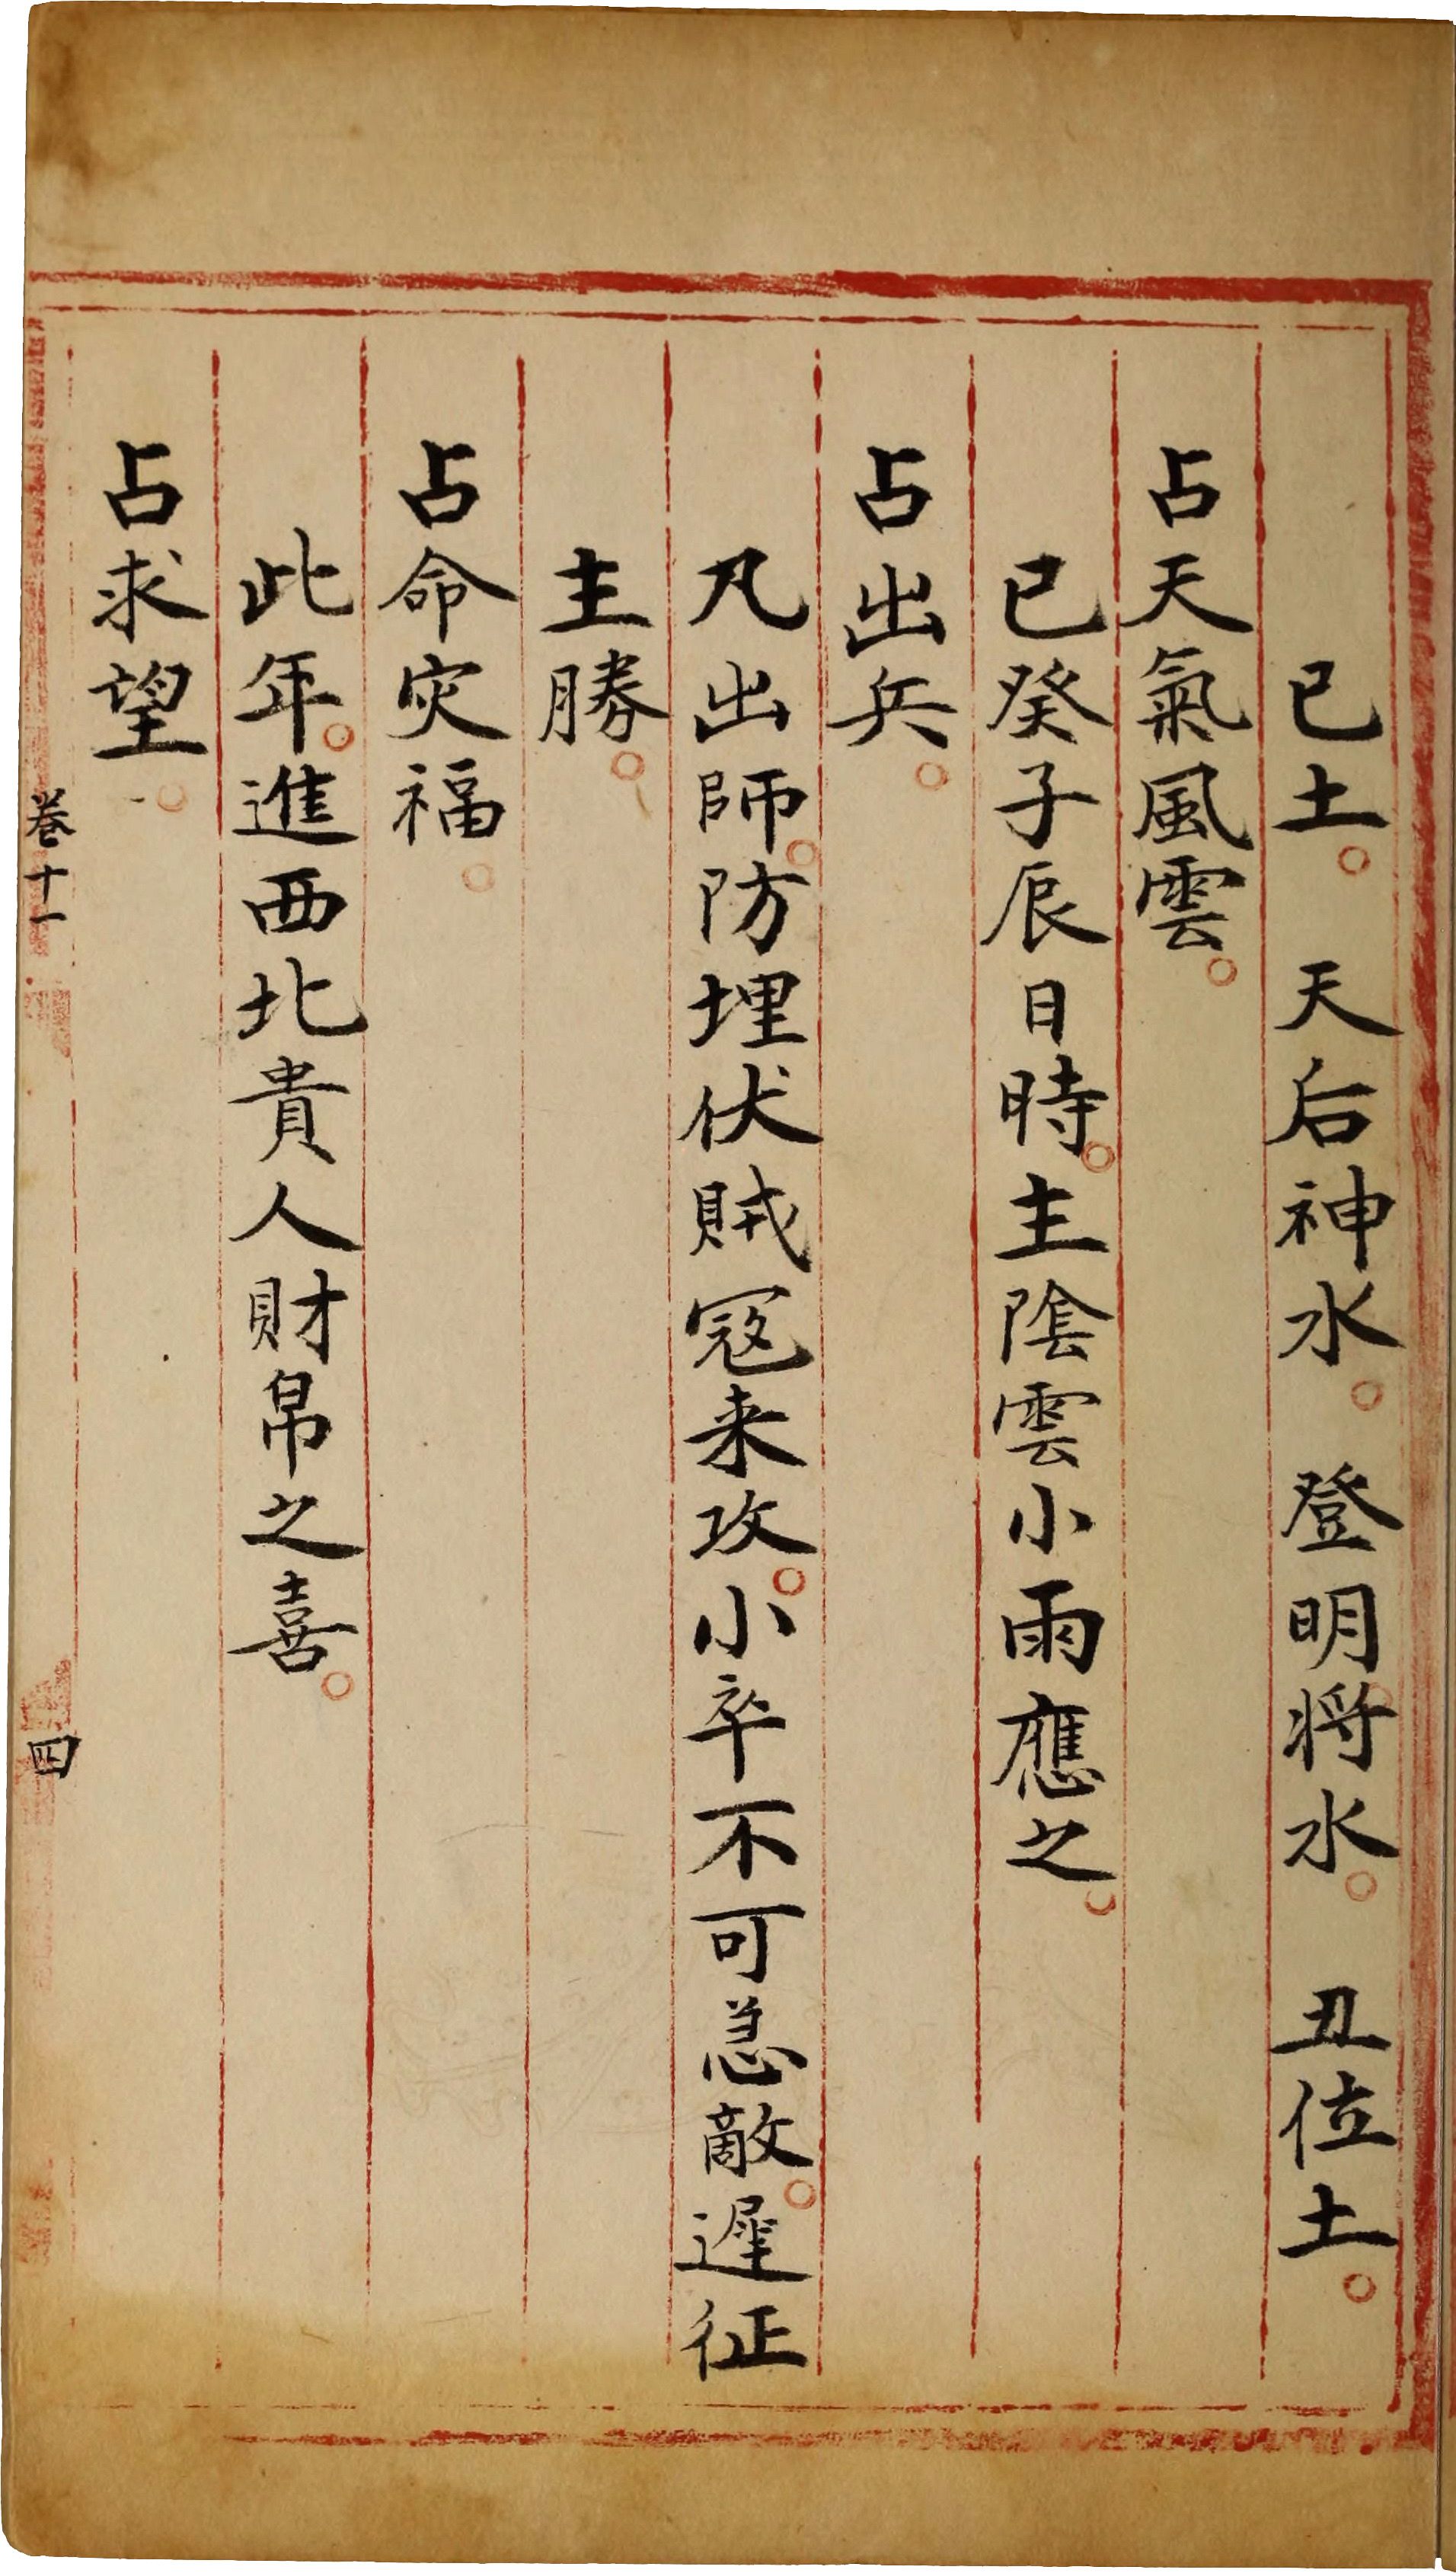 已土。　天后神水。　登明將水。　丑位土。
占天氣風雲。
已癸子辰日時。主陰雲小雨應之。
占出兵。
凡出師。防埋伏賊寇来攻。小卒不可急敵。遲征
主勝。
占命灾福。
此年。進西北貴人財帛之喜。
占求望。
卷十一
四